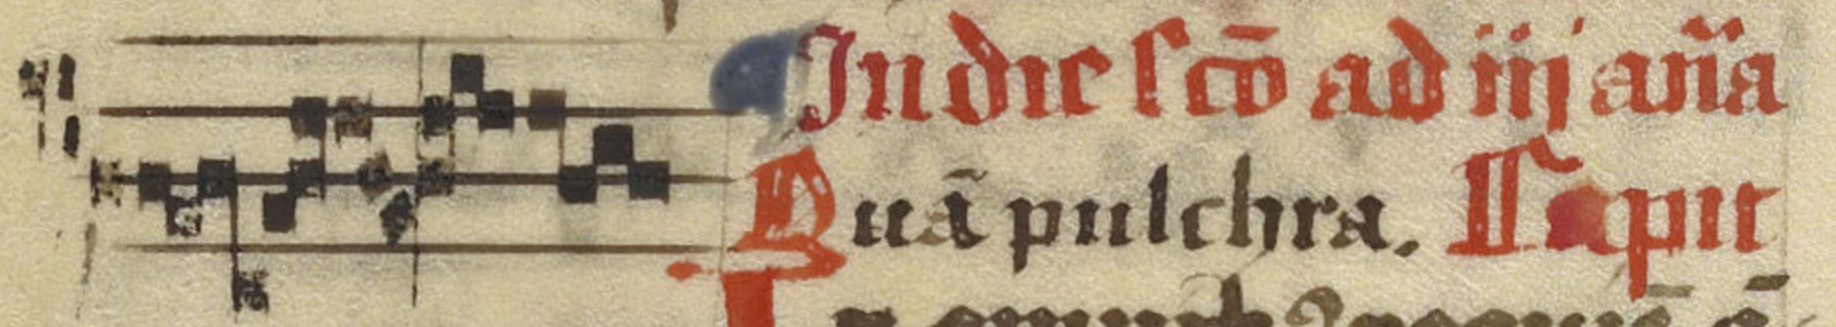 In die scō ad iij an̄a
Quā pulchra. Capit